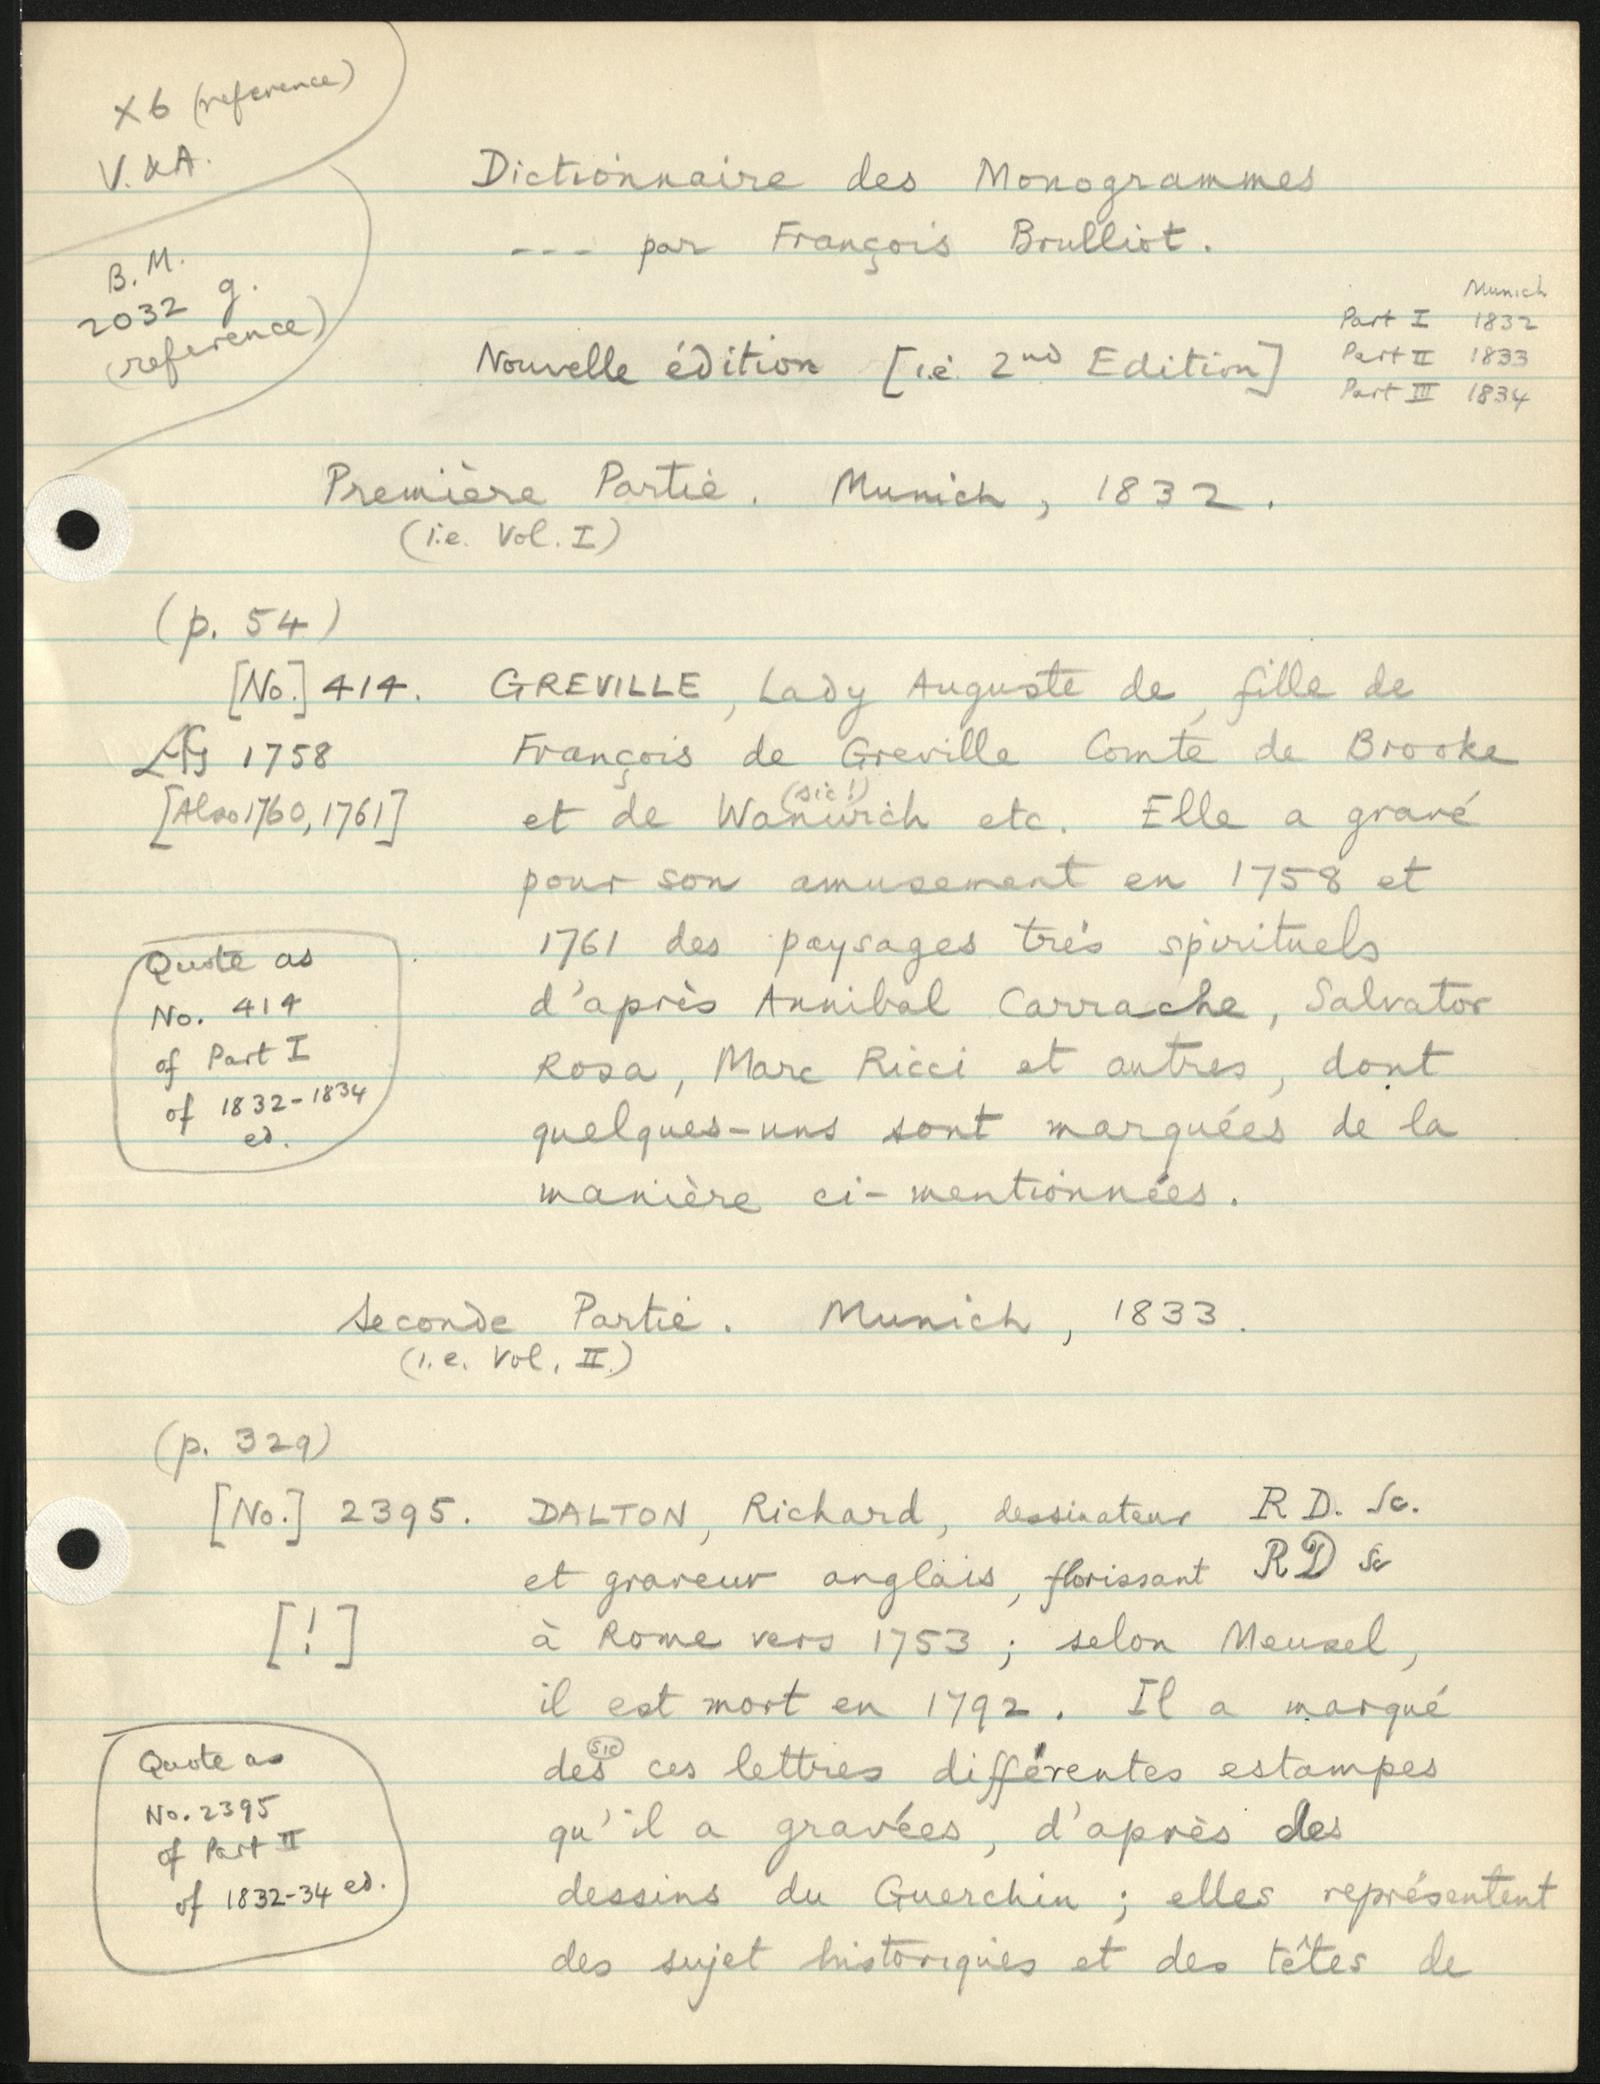 X6 (reference)
V. & A.
B. M.
2032 g.
(reference)
Dictionnaire des Monogrammes
--- par François Brulliot.
Munich
Part I 1832
Part II 1833
Part III 1834
Nouvelle édition [i.e. 2nd Edition]
Première Partie. Munich, 1832.
(i.e. Vol. I)
(p. 54)
[No.] 414. GREVILLE, Lady Auguste de, fille de
1758 François de Greville Comte de Brooke
(sic!)
[Also 1760, 1761] et de Wanwich etc. Elle a gravé
pour son amusement en 1758 et
1761 des paysages très spirituels
d'après Annibal Carrache, Salvator
Rosa, Marc Ricci et autres, dont
quelques-uns sont marquées de la
manière ci-mentionnées.
Quote as
No. 414
of Part I
of 1832-1834
ed.
Seconde Partie. Munich, 1833.
(i.e. Vol. II.)
(p. 329)
[No.] 2395. DALTON, Richard, dessinateur R D. Sc.
et graveur anglais, florissant RD Sc
[!] à Rome vers 1753 ; selon Meusel,
il est mort en 1792. Il a marqué
sic
des ces lettres différentes estampes
qu'il a gravées, d'après des
dessins du Guerchin ; elles représentent
des sujet historiques et des têtes de
Quote as
No. 2395
of Part II
of 1832-34 ed.